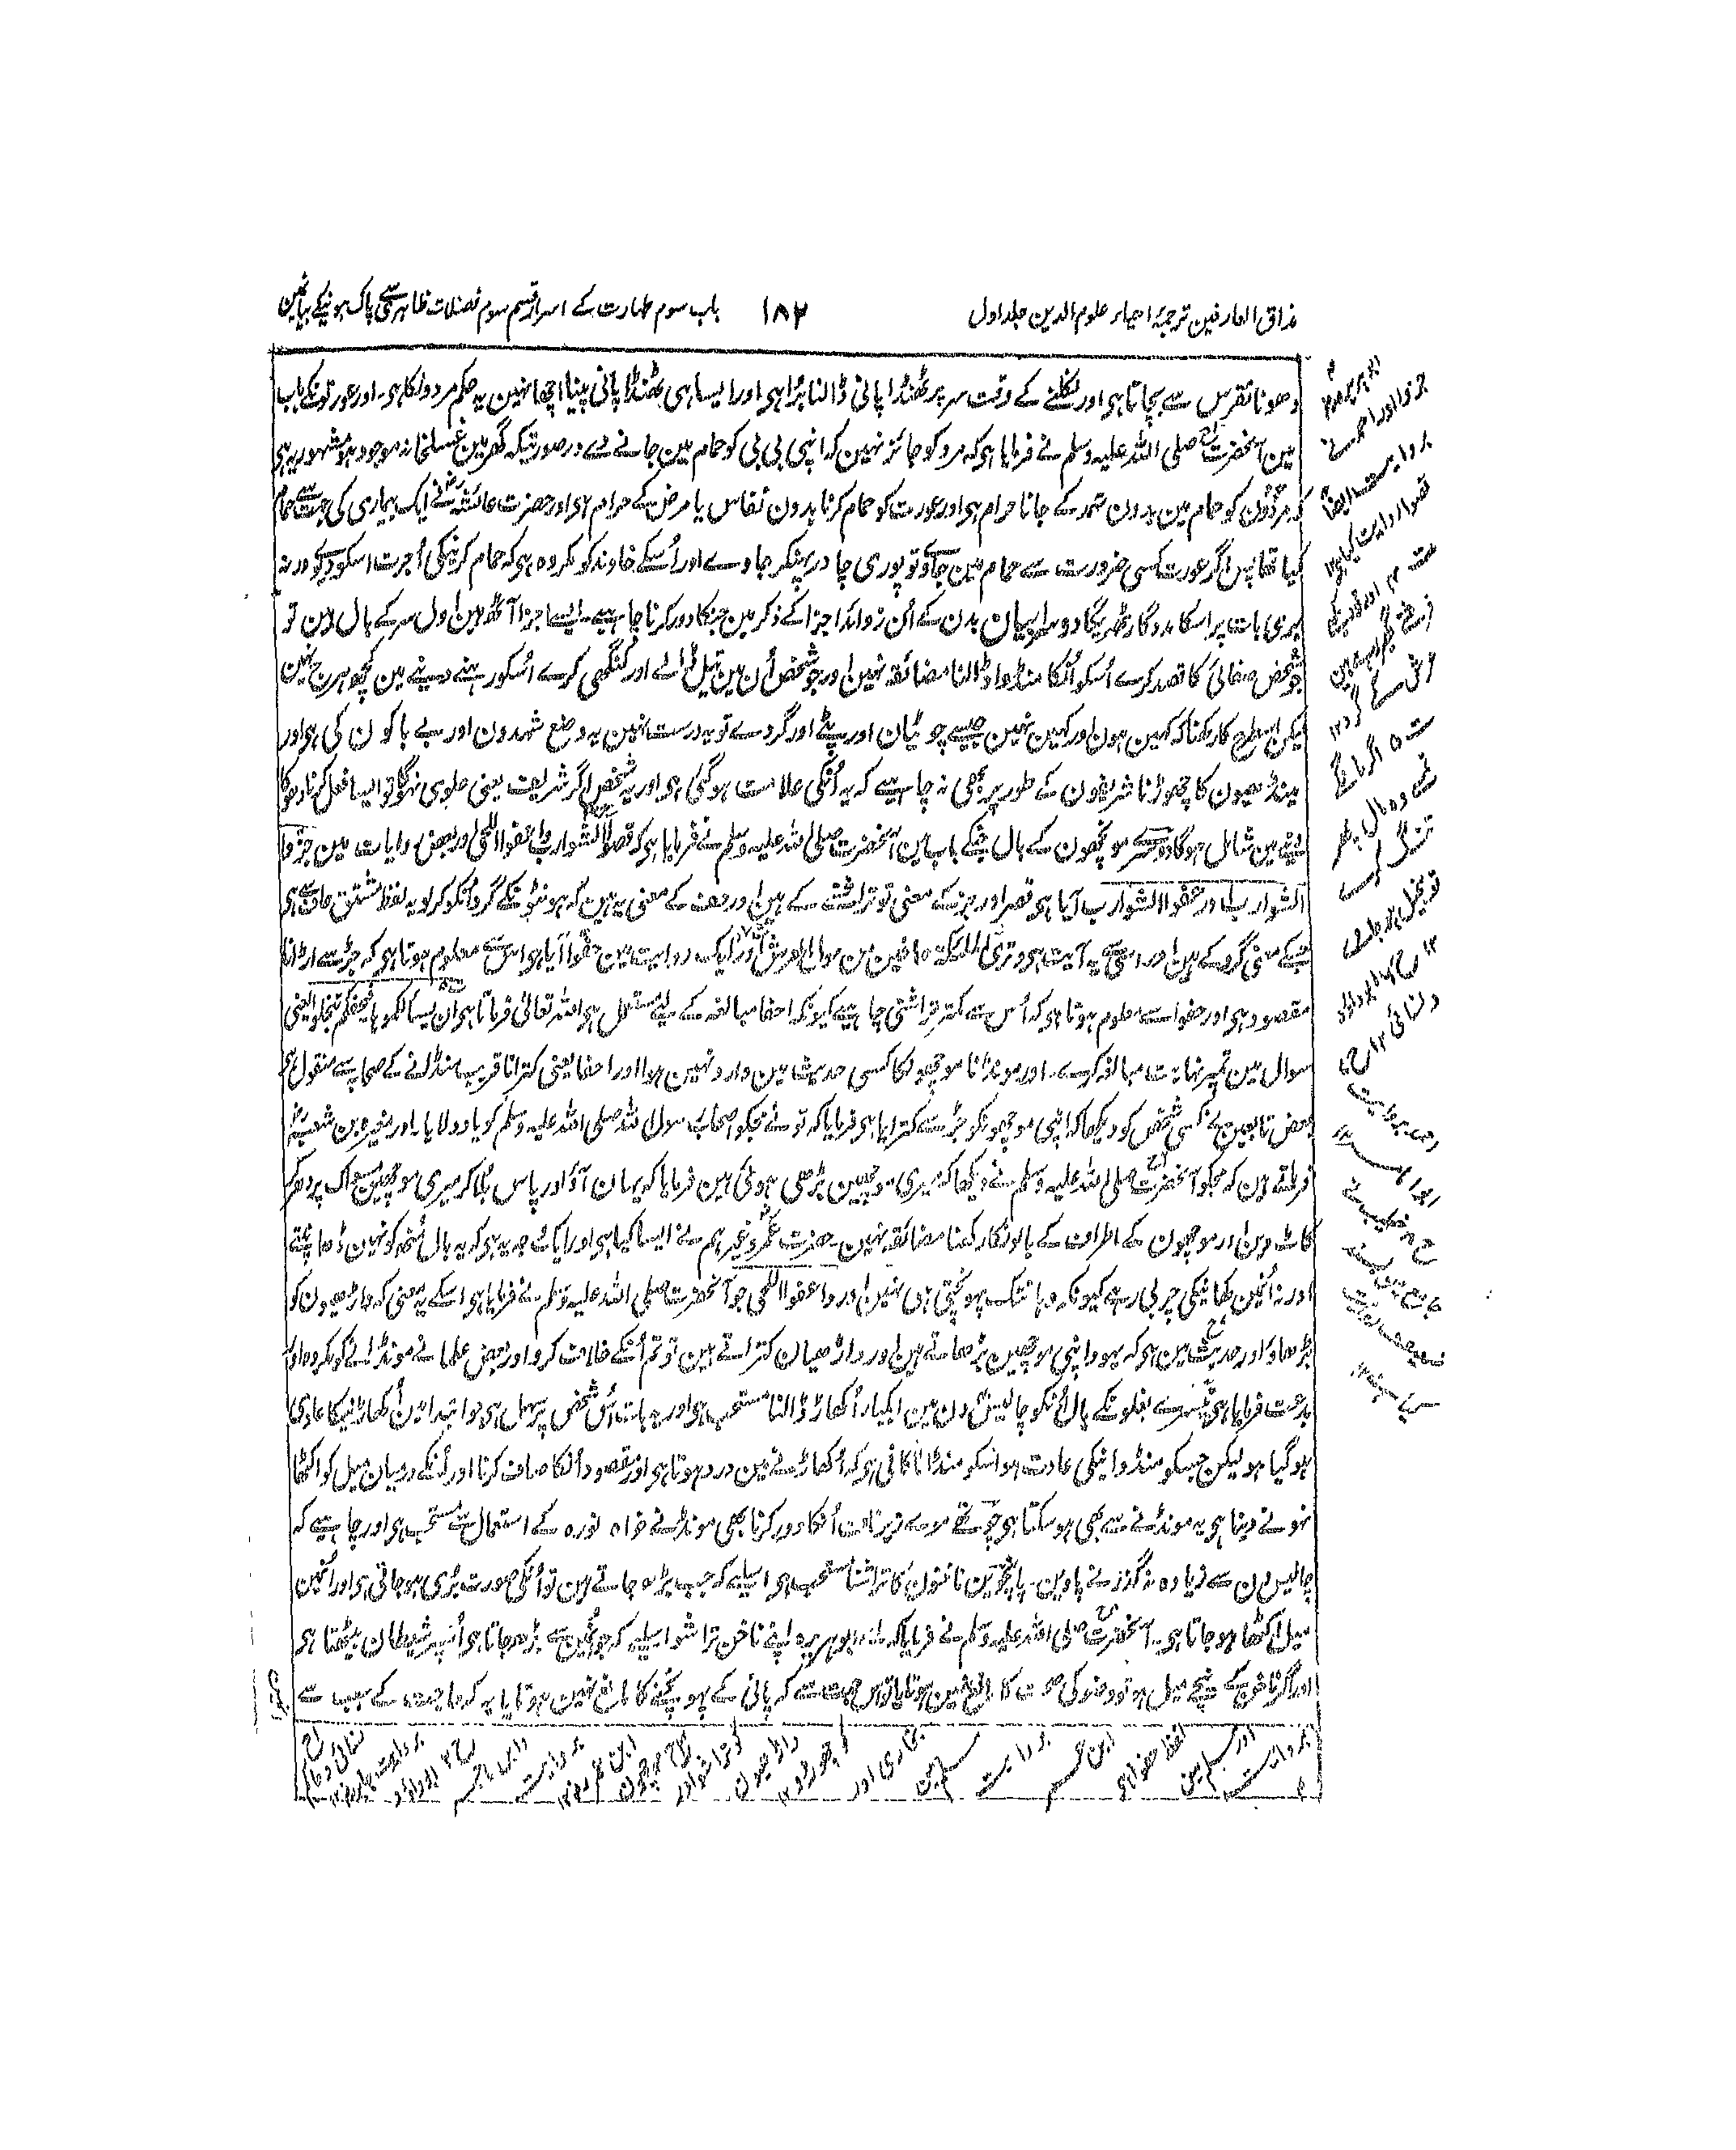 مذاق العارفین ترجمۂ احیاء علوم الدین جلد اول
۱۸۲
باب سوم طہارت کے اسرار قسم سوم فضلات ظاہر سے پاک ہونیکے بیانمین
دھونا نقرس سے بچاتا ہی اور نکلنے کے وقت سر پر ٹھنڈا پانی ڈالنا بُرا ہی اور ایسا ہی ٹھنڈا پانی پینا اچھا نہین یہ حکم مردونکا ہی۔ اور عورتونکے باب
مین آنحضرت صلی اللہ علیہ وسلم نے فرمایا ہی کہ مرد کو جائز نہین کہ اپنی بی بی کو حمام مین جانے دے درصورتیکہ گھر مین غسلخانہ موجود ہو مشہور یہ ہی
کہ مردون کو حمام مین بدون تہمد کے جانا حرام ہی اور عورت کو حمام کرنا بدون نفاس یا مرض کے حرام ہی اور حضرت عائشہ نے ایک بیماری کی جہت سے حمام
کیا تھا پس اگر عورت کسی ضرورت سے حمام مین جاوے تو پوری چادر پہنکر جاوے اور اُسکے خاوند کو مکروہ ہی کہ حمام کرنیکی اُجرت اسکو دیوے ورنہ
بری بات پر اسکا مددگار ٹھریگا دوسرا بیان بدن کے اُن زوائد اجزا کے ذکر مین جنکا دور کرنا چاہیے۔ ایسے اجزا آٹھ ہین اول سر کے بال ہین تو
جو شخص صفائی کا قصد کرے اُسکو اُنکا منڈوا ڈالنا مضائقہ نہین اور جو شخص اُن مین تیل ڈالے اور کنگھی کرے اُسکو رہنے دینے مین کچھ ہرج نہین
لیکن اسطرح کا رکھنا کہ کہین ہون اور کہین نہین جیسے چوٹیان اور پٹے اور گردے تو یہ درست نہین یہ وضع شہدون اور بے باکون کی ہی اور
مینڈھیون کا چھوڑنا شریفون کے طور پر بھی نہ چاہیے کہ یہ اُنکی علامت ہو گئی ہی اور یہ شخص اگر شریف یعنی علوی نہوگا تو ایسا فعل کرنا دھوکا
دینے مین شامل ہوگا دوسرے مونچھون کے بال جنکے باب مین آنحضرت صلی اللہ علیہ وسلم نے فرمایا ہی کہ قصوا الشوارب واعفوا اللحی اور بعض روایات مین جزوا
الشوارب اور حفوا الشوارب آیا ہی قصر اور جز کے معنی تو تراشنے کے ہین اور حف کے معنی یہ ہین کہ ہونٹونکے گرد اُنکو کرلو یہ لفظ مشتق حاف سے ہی
جسکے معنی گرد کے ہین اور اسی سے یہ آیت ہی وتری الملائکۃ حافین من حول العرش اور ایک روایت مین حفوا آیا ہی اس سے معلوم ہوتا ہی کہ جڑ سے اڑانا
مقصود ہی اور حفوا سے معلوم ہوتا ہی کہ اُس سے کمتر تراشنی چاہیے کیونکہ احفا مبالغہ کے لیے مستعمل ہی اللہ تعالی فرماتا ہی ان یسالکموہا فیحفکم تبخلوا یعنی
سوال مین تمپر نہایت مبالغہ کرے۔ اور مونڈانا مونچھونکا کسی حدیث مین وارد نہین ہوا اور احفا یعنی کترانا قریب منڈانے کے صحابہ سے منقول ہی
بعض تابعین نے کسی شخص کو دیکھا کہ اپنی مونچھونکو جڑ سے کترایا ہی فرمایا کہ تونے مجکو اصحاب رسول اللہ صلی اللہ علیہ وسلم کو یاد دلایا۔ اور مغیرہ بن شعبہ
فرماتے ہین کہ مجکو آنحضرت صلی اللہ علیہ وسلم نے دیکھا کہ میری مونچھین بڑھی ہوئی ہین فرمایا کہ یہان آؤ اور پاس بلا کر میری مونچھین مسواک پر دھر کر
کاٹ دین اور مونچھون کے اطراف کے بالونکا رکھنا مضائقہ نہین۔ حضرت عمر وغیرہم نے ایسا کیا ہی اور ایک وجہ یہ ہی کہ یہ بال مُنھ کو نہین ڈھانپتے
اور نہ اُنمین کھانیکی چربی رہے کیونکہ وہانتک پہونچتی ہی نہین اور واعفوا اللحی جو آنحضرت صلی اللہ علیہ وسلم نے فرمایا ہی اسکے یہ معنی کہ داڑھیون کو
بڑھاؤ اور حدیث مین ہی کہ یہود اپنی مونچھین بڑھاتے ہین اور داڑھیان کتراتے ہین تو تم اُنکے خلاف کرو اور بعض علما نے مونڈانے کو مکروہ اور
بدعت فرمایا ہی تیسرے بغلونکے بال اُنکو چالیس دن مین ایکبار اُکھاڑ ڈالنا مستحب ہی اور یہ بات اُس شخص پر سہل ہی جو ابتدا مین اُکھاڑنیکا عادی
ہو گیا ہو لیکن جسکو منڈوانیکی عادت ہو اسکو منڈانا کافی ہی کہ اُکھاڑنے مین درد ہوتا ہی اور مقصود اُنکا صاف کرنا اور اُنکے درمیان میل کو اکٹھا
نہونے دینا ہی یہ مونڈنے سے بھی ہو سکتا ہی چوتھے موے زیرناف اُنکا دور کرنا بھی مونڈنے خواہ نورہ کے استعمال سے مستحب ہی اور چاہیے کہ
چالیس دن سے زیادہ نہ گذرنے پاوین۔ پانچوین ناخنون کا تراشنا مستحب ہی اسلیے کہ جب بڑھ جاتے ہین تو اُنکی صورت بُری ہو جاتی ہی اور اُنمین
میل اکٹھا ہو جاتا ہی۔ آنحضرت صلی اللہ علیہ وسلم نے فرمایا کہ اے ابوہریرہ اپنے ناخن تراشو اسلیے کہ جو اُنمین سے بڑھ جاتا ہی اُسپر شیطان بیٹھتا ہی
اور اگر ناخن کے نیچے میل ہو تو وضو کی صحت کا مانع نہین ہوتا یا تو اس جہت سے کہ پانی کے پہونچنے کا مانع نہین ہوتا یا یہ کہ حاجت کے سبب سے